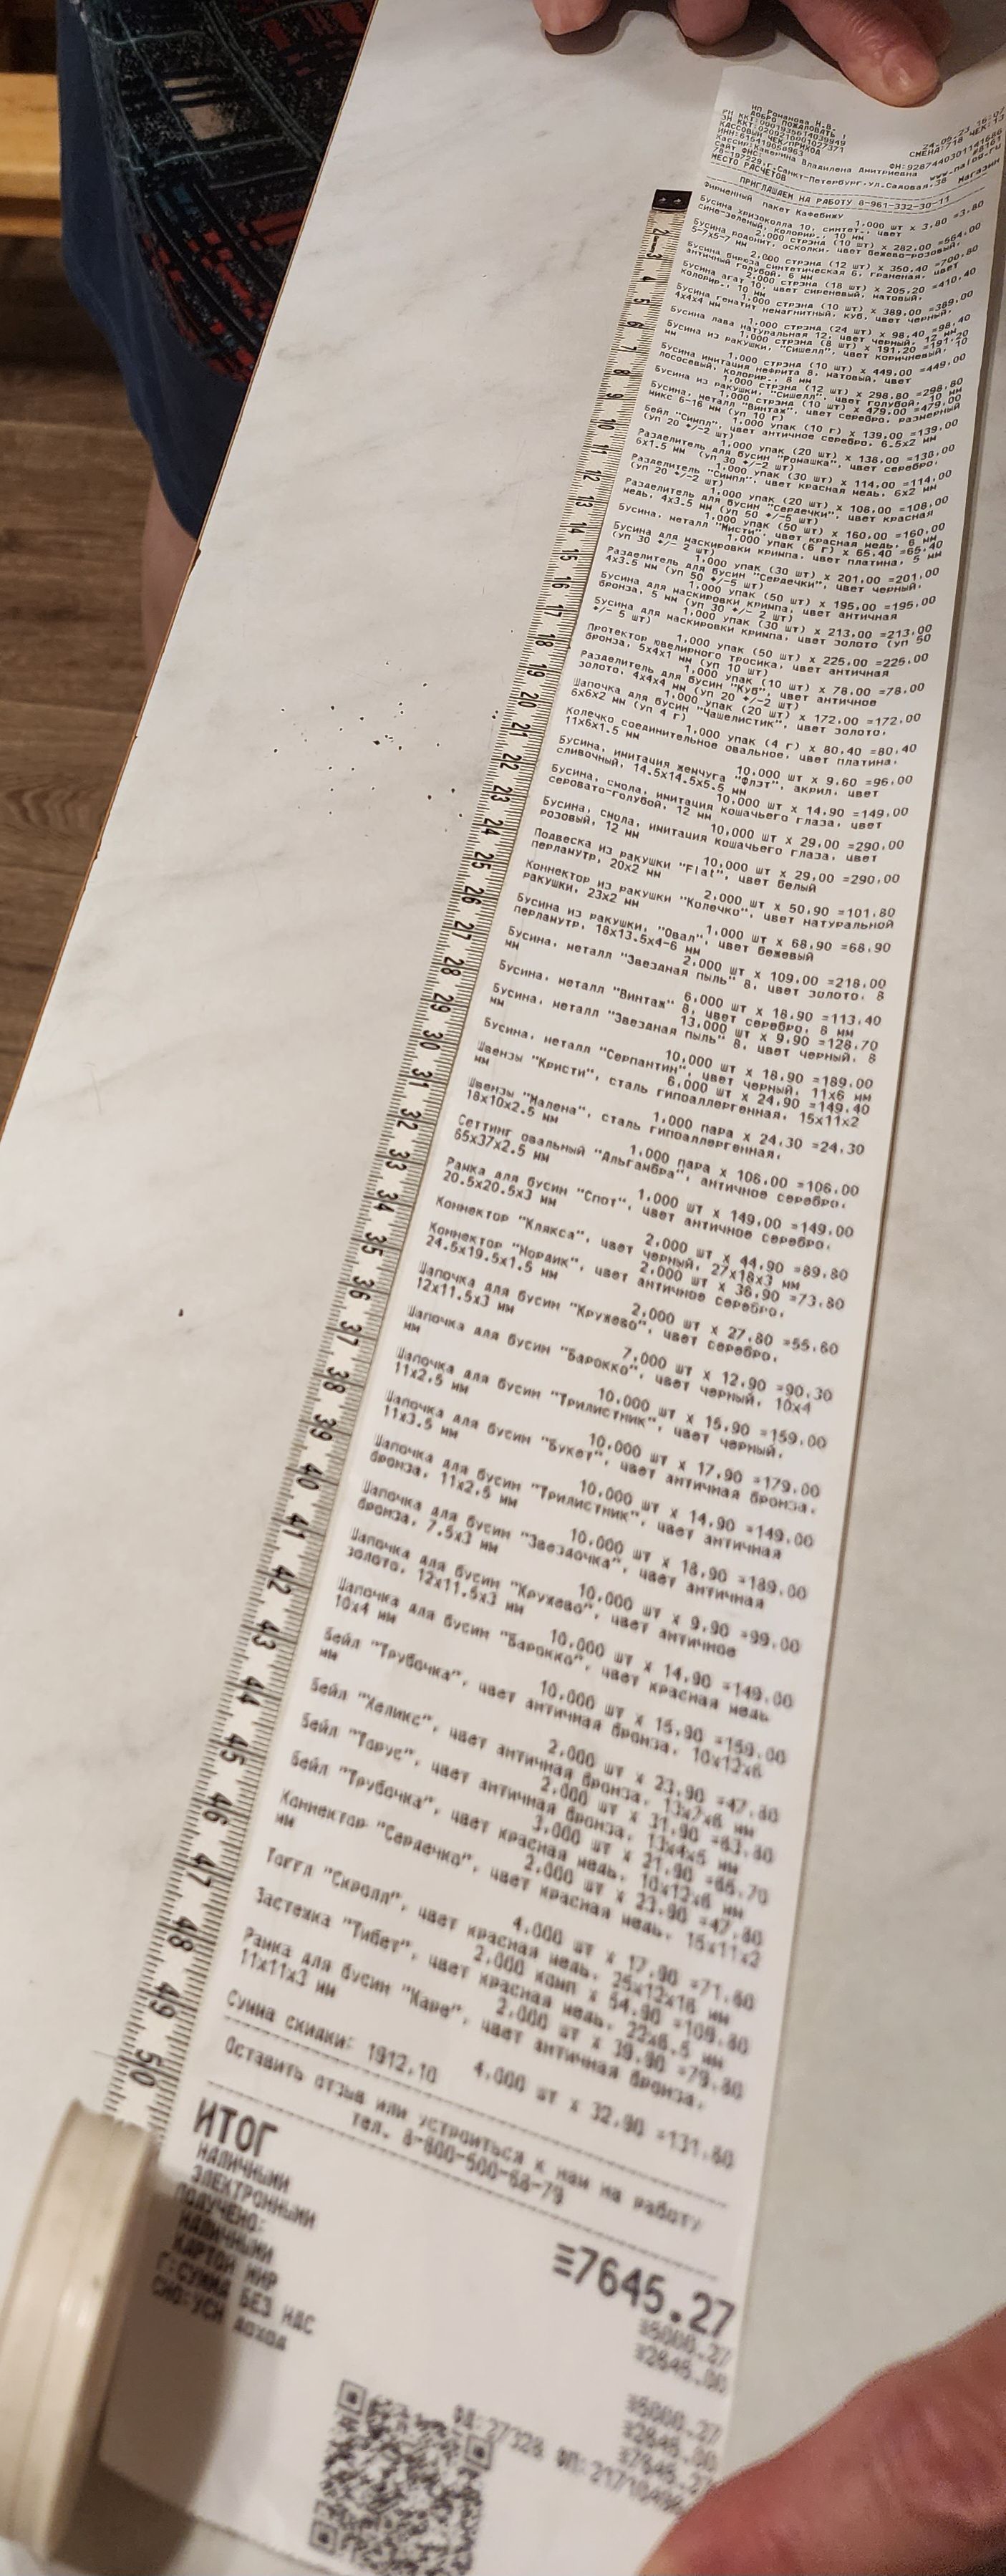 ИП Романова Н.В.
ДОБРО ПОЖАЛОВАТЬ !
24.05.23 16:07
КАССОВЫЙ ЧЕК/ПРИХОД
СМЕНА:718 ЧЕК:13
Сайт ФНС:
www.nalog.ru
МЕСТО РАСЧЕТОВ
Магазин
ПРИГЛАШАЕМ НА РАБОТУ 8-961-332-30-11
Фирменный пакет Кафебижу
1.000 шт x 3.80 =3.80
Бусина хризоколла 10, синтет., цвет
сине-зеленый, колорир., 10 мм
2.000 стрэна (10 шт) x 282.00 =564.00
Бусина родонит, осколки, цвет бежево-розовый,
5-7x5-7 мм
2.000 стрэна (12 шт) x 350.40 =700.80
Бусина бирюза синтетическая 6, граненая, цвет
античный голубой, 6 мм
2.000 стрэна (18 шт) x 205.20 =410.40
Бусина агат 10, цвет сиреневый, матовый,
колорир., 10 мм
1.000 стрэна (10 шт) x 389.00 =389.00
Бусина гематит немагнитный, куб, цвет черный,
4x4x4 мм
1.000 стрэна (24 шт) x 98.40 =98.40
Бусина лава натуральная 12, цвет черный, 12 мм
1.000 стрэна (8 шт) x 191.20 =191.20
Бусина из ракушки, "Сишелл", цвет коричневый, 10
мм
1.000 стрэна (10 шт) x 449.00 =449.00
Бусина имитация нефрита 8, матовый, цвет
лососевый, колорир., 8 мм
1.000 стрэна (12 шт) x 298.80 =298.80
Бусина из ракушки, "Сишелл", цвет голубой, 10 мм
1.000 стрэна (10 шт) x 479.00 =479.00
Бусина, металл "Винтаж", цвет серебро, размерный
микс 6-16 мм (уп 10 г)
1.000 упак (10 г) x 139.00 =139.00
Бейл "Симпл", цвет античное серебро, 6.5x2 мм
(уп 20 +/-2 шт)
1.000 упак (20 шт) x 138.00 =138.00
Разделитель для бусин "Ромашка", цвет серебро,
6x1.5 мм (уп 30 +/-2 шт)
1.000 упак (30 шт) x 114.00 =114.00
Разделитель "Симпл", цвет красная медь, 6x2 мм
(уп 20 +/-2 шт)
1.000 упак (20 шт) x 108.00 =108.00
Разделитель для бусин "Сердечки", цвет красная
медь, 4x3.5 мм (уп 50 +/-5 шт)
1.000 упак (50 шт) x 160.00 =160.00
Бусина, металл "Мисти", цвет красная медь, 6 мм
1.000 упак (6 г) x 65.40 =65.40
Бусина для маскировки кримпа, цвет платина, 5 мм
(уп 30 +/- 2 шт)
1.000 упак (30 шт) x 201.00 =201.00
Разделитель для бусин "Сердечки", цвет черный,
4x3.5 мм (уп 50 +/-5 шт)
1.000 упак (50 шт) x 195.00 =195.00
Бусина для маскировки кримпа, цвет античная
бронза, 5 мм (уп 30 +/- 2 шт)
1.000 упак (30 шт) x 213.00 =213.00
Бусина для маскировки кримпа, цвет золото (уп 50
+/- 5 шт)
1.000 упак (50 шт) x 225.00 =225.00
Протектор ювелирного тросика, цвет античная
бронза, 5x4x1 мм (уп 10 шт)
1.000 упак (10 шт) x 78.00 =78.00
Разделитель для бусин "Куб", цвет античное
золото, 4x4x4 мм (уп 20 +/-2 шт)
1.000 упак (20 шт) x 172.00 =172.00
Шапочка для бусин "Чашелистик", цвет золото,
6x6x2 мм (уп 4 г)
1.000 упак (4 г) x 80.40 =80.40
Колечко соединительное овальное, цвет платина,
11x6x1.5 мм
10.000 шт x 9.60 =96.00
Бусина, имитация жемчуга "Флэт", акрил, цвет
сливочный, 14.5x14.5x5.5 мм
10.000 шт x 14.90 =149.00
Бусина, смола, имитация кошачьего глаза, цвет
серовато-голубой, 12 мм
10.000 шт x 29.00 =290.00
Бусина, смола, имитация кошачьего глаза, цвет
розовый, 12 мм
10.000 шт x 29.00 =290.00
Подвеска из ракушки "Flat", цвет белый
перламутр, 20x2 мм
2.000 шт x 50.90 =101.80
Коннектор из ракушки "Колечко", цвет натуральной
ракушки, 23x2 мм
1.000 шт x 68.90 =68.90
Бусина из ракушки, "Овал", цвет бежевый
перламутр, 18x13.5x4-6 мм
2.000 шт x 109.00 =218.00
Бусина, металл "Звездная пыль" 8, цвет золото, 8
мм
6.000 шт x 18.90 =113.40
Бусина, металл "Винтаж" 8, цвет серебро, 8 мм
13.000 шт x 9.90 =128.70
Бусина, металл "Звездная пыль" 8, цвет черный, 8
мм
10.000 шт x 18.90 =189.00
Бусина, металл "Серпантин", цвет черный, 11x6 мм
6.000 шт x 24.90 =149.40
Швензы "Кристи", сталь гипоаллергенная, 15x11x2
мм
1.000 пара x 24.30 =24.30
Швензы "Малена", сталь гипоаллергенная,
18x10x2.5 мм
1.000 пара x 106.00 =106.00
Сеттинг овальный "Альгамбра", античное серебро,
65x37x2.5 мм
1.000 шт x 149.00 =149.00
Рамка для бусин "Спот", цвет античное серебро,
20.5x20.5x3 мм
2.000 шт x 44.90 =89.80
Коннектор "Клякса", цвет черный, 27x18x3 мм
2.000 шт x 36.90 =73.80
Коннектор "Нордик", цвет античное серебро,
24.5x19.5x1.5 мм
2.000 шт x 27.80 =55.60
Шапочка для бусин "Кружево", цвет серебро,
12x11.5x3 мм
7.000 шт x 12.90 =90.30
Шапочка для бусин "Барокко", цвет черный, 10x4
мм
10.000 шт x 15.90 =159.00
Шапочка для бусин "Трилистник", цвет черный,
11x2.5 мм
10.000 шт x 17.90 =179.00
Шапочка для бусин "Букет", цвет античная бронза,
11x3.5 мм
10.000 шт x 14.90 =149.00
Шапочка для бусин "Трилистник", цвет античная
бронза, 11x2.5 мм
10.000 шт x 18.90 =189.00
Шапочка для бусин "Звездочка", цвет античная
бронза, 7.5x3 мм
10.000 шт x 9.90 =99.00
Шапочка для бусин "Кружево", цвет античное
золото, 12x11.5x3 мм
10.000 шт x 14.90 =149.00
Шапочка для бусин "Барокко", цвет красная медь
10x4 мм
10.000 шт x 15.90 =159.00
Бейл "Трубочка", цвет античная бронза, 10x12x6
мм
2.000 шт x 23.90 =47.80
Бейл "Хеликс", цвет античная бронза, 13x7x6 мм
2.000 шт x 31.90 =63.80
Бейл "Торус", цвет античная бронза, 13x4x5 мм
3.000 шт x 21.90 =65.70
Бейл "Трубочка", цвет красная медь, 10x12x6 мм
2.000 шт x 23.90 =47.80
Коннектор "Сердечко", цвет красная медь, 15x11x2
мм
4.000 шт x 17.90 =71.60
Тоггл "Скролл", цвет красная медь, 25x12x16 мм
2.000 комп x 54.90 =109.80
Застежка "Тибет", цвет красная медь, 22x6.5 мм
2.000 шт x 39.90 =79.80
Рамка для бусин "Каре", цвет античная бронза,
11x11x3 мм
4.000 шт x 32.90 =131.60
Сумма скидки: 1912.10
Оставить отзыв или устроиться к нам на работу
тел. 8-800-500-68-79
ИТОГ ≡7645.27
НАЛИЧНЫМИ ≡5000.27
ЭЛЕКТРОННЫМИ ≡2645.00
ПОЛУЧЕНО:
НАЛИЧНЫМИ ≡5000.27
КАРТОЙ МИР ≡2645.00
Г:СУММА БЕЗ НДС ≡7645.27
СНО:УСН ДОХОД
ФД:27326
2 3 4 5 6 7 8 9 10 11 12 13 14 15 16 17 18 19 20 21 22 23 24 25 26 27 28 29 30 31 32 33 34 35 36 37 38 39 40 41 42 43 44 45 46 47 48 49 50